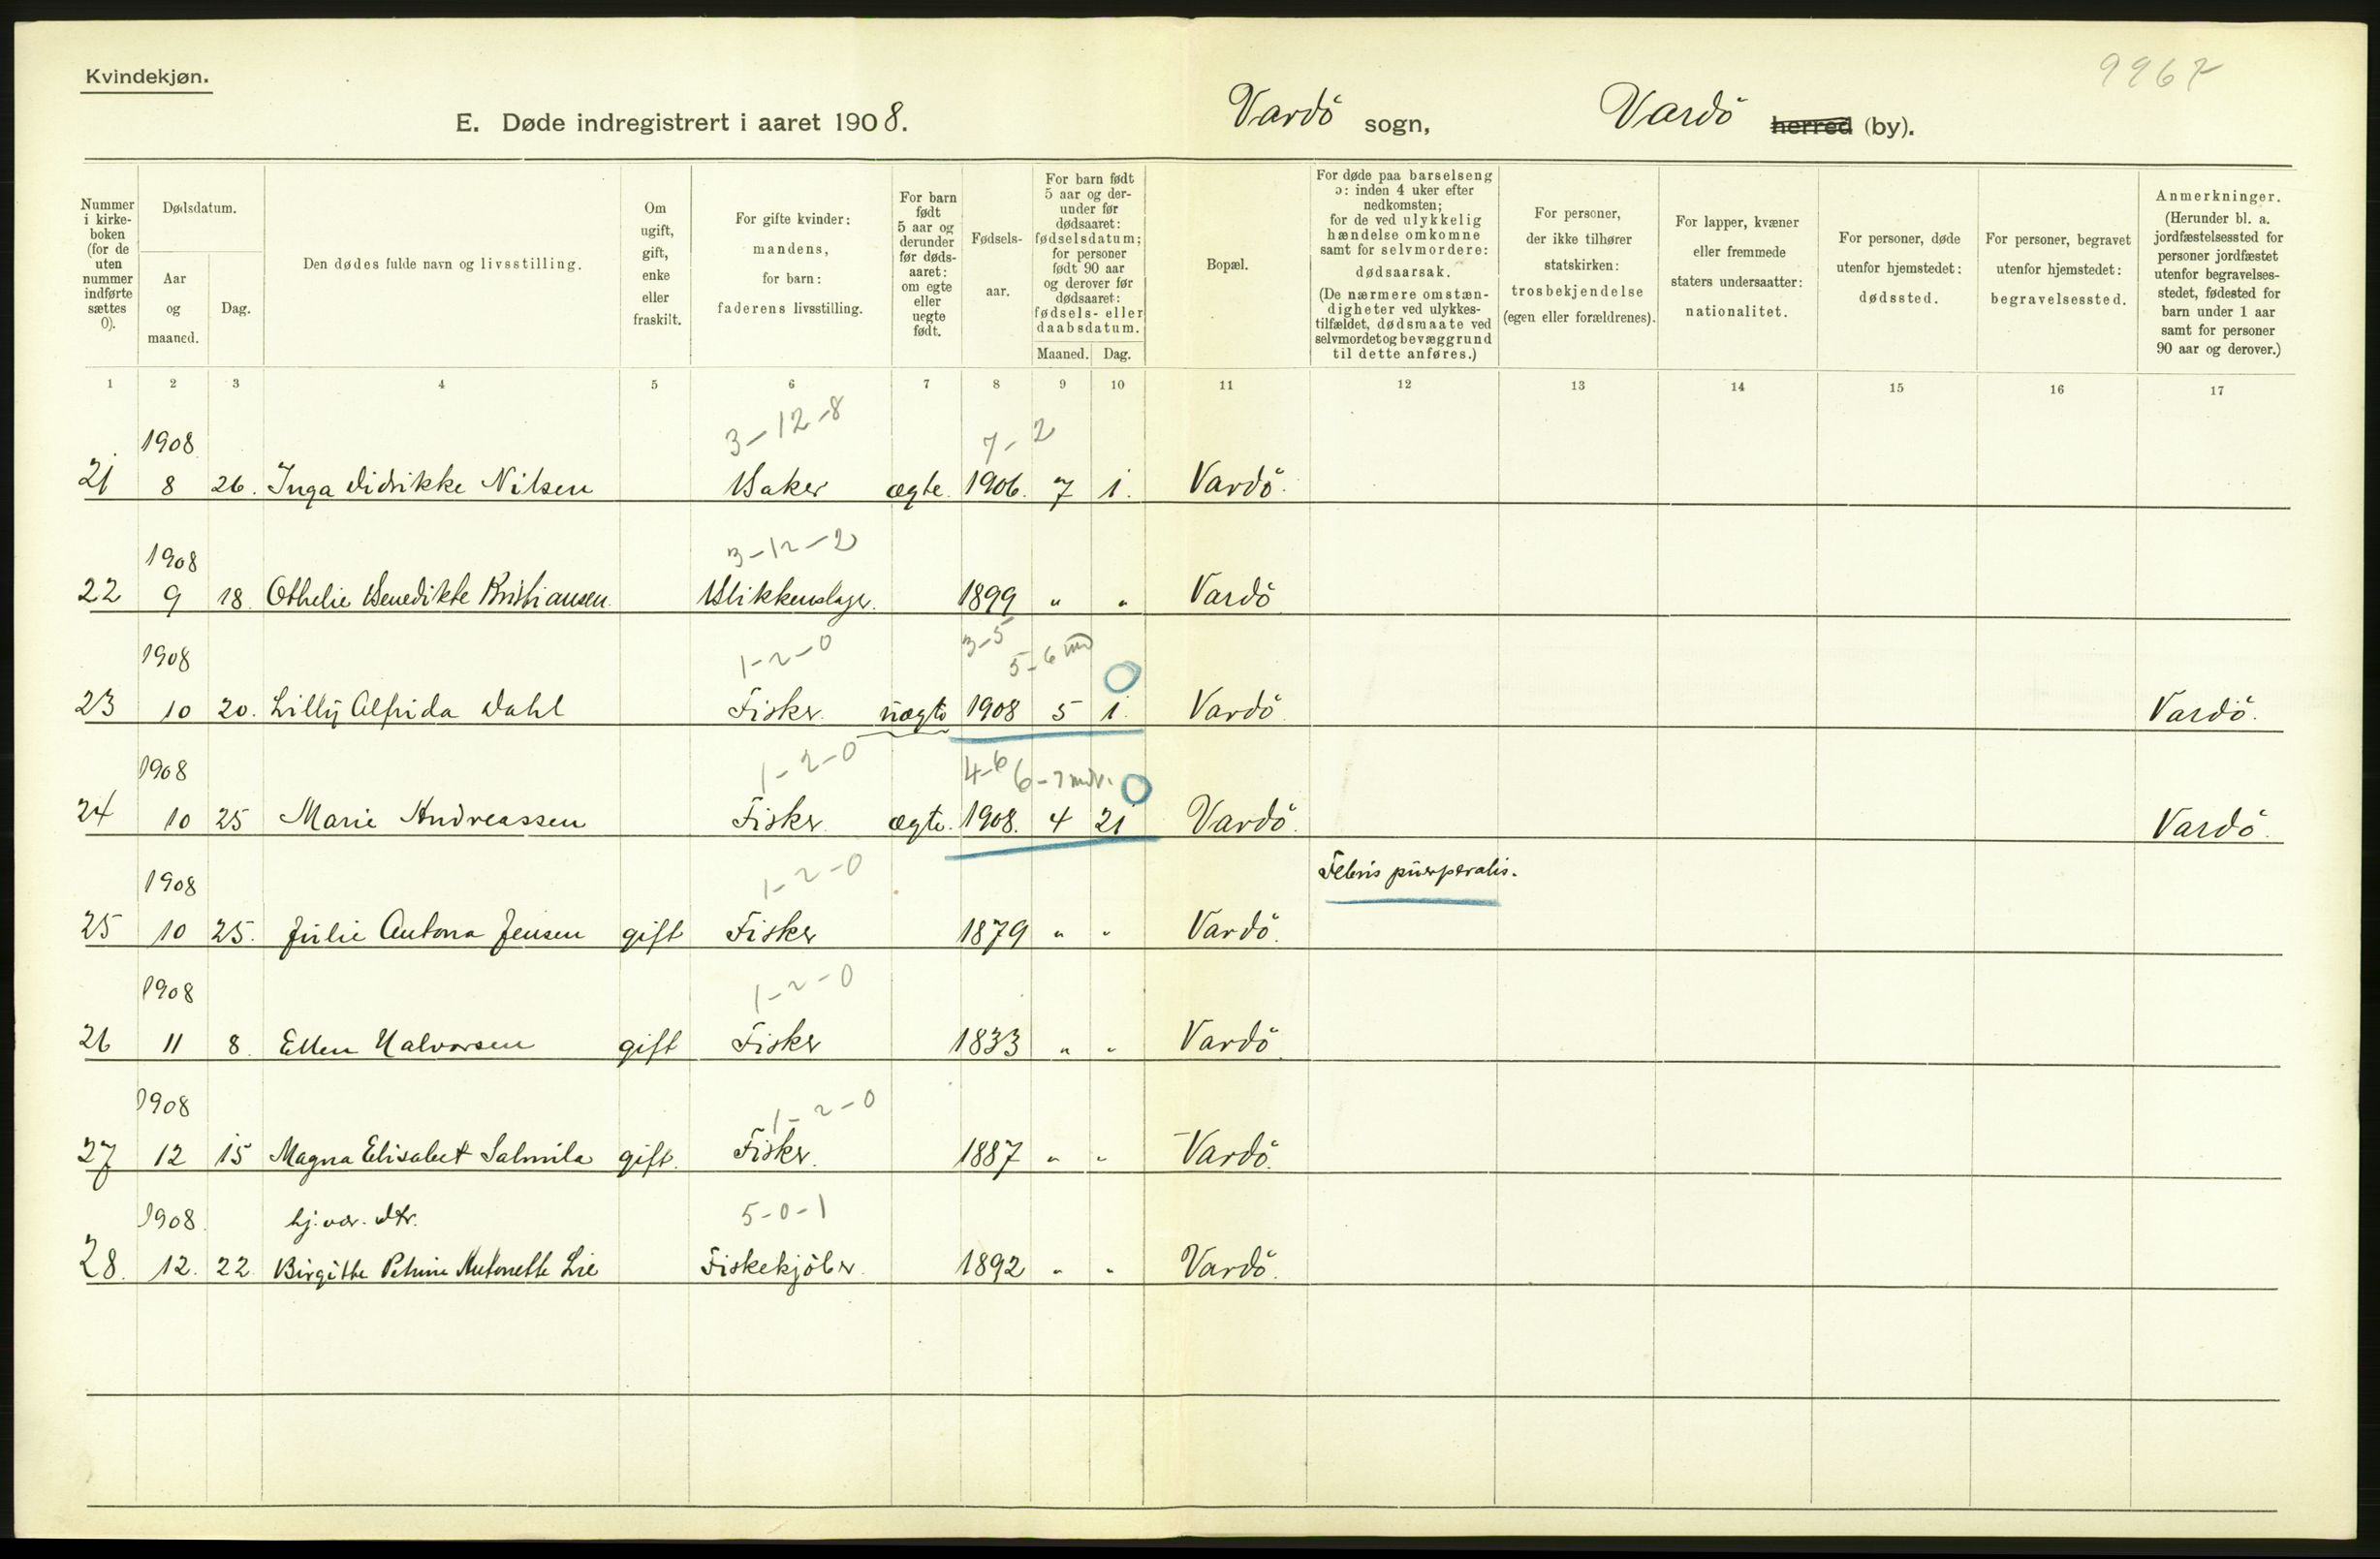 Kvindekjøn.
9967
E. Døde indregistrert i aaret 1908.
Vardö sogn, Vardö herred (by).
Nummer i kirke- boken (for de uten nummer indførte sættes 0).
Dødsdatum.
Aar og maaned.
Dag.
Den dødes fulde navn og livsstilling.
Om ugift, gift, enke eller fraskilt.
For gifte kvinder: mandens, for barn: faderens livsstilling.
For barn født 5 aar og derunder før døds- aaret: om egte eller uegte født.
Fødsels- aar.
For barn født 5 aar og der- under før dødsaaret: fødselsdatum; for personer født 90 aar og derover før dødsaaret: fødsels- eller daabsdatum.
Maaned. Dag.
Bopæl.
For døde paa barselseng ɔ: inden 4 uker efter nedkomsten; for de ved ulykkelig hændelse omkomne samt for selvmordere: dødsaarsak. (De nærmere omstæn- digheter ved ulykkes- tilfældet, dødsmaate ved selvmordet og bevæggrund til dette anføres.)
For personer, der ikke tilhører statskirken: trosbekjendelse (egen eller forældrenes).
For lapper, kvæner eller fremmede staters undersaatter: nationalitet.
For personer, døde utenfor hjemstedet: dødssted.
For personer, begravet utenfor hjemstedet: begravelsessted.
Anmerkninger. (Herunder bl. a. jordfæstelsessted for personer jordfæstet utenfor begravelses- stedet, fødested for barn under 1 aar samt for personer 90 aar og derover.)
1 2 3 4 5 6 7 8 9 10 11 12 13 14 15 16 17
1908 3-12-8 7-2
21 8 26. Inga Didrikke Nilsen Baker ægte. 1906. 7 1. Vardö.
1908 3-12-2
22 9 18. Othelie Benedikte Kristiansen Blikkenslager. 1899 " " Vardö
1908 1-2-0 3-5 5-6 md 0
23 10 20. Lilly Alfrida Dahl Fisker. uægte 1908 5 1. Vardö Vardö.
1908 1-2-0 4-6 6-7 mdr. 0
24 10 25 Marie Andreassen Fisker. ægte. 1908. 4 21 Vardö. Vardö.
1908 1-2-0 Febris puerperalis.
25 10 25. Julie Antona Jensen gift Fisker 1879 " " Vardö.
1908 1-2-0
26 11 8. Ellen Halvorsen gift Fisker 1833 " " Vardö.
1908 1-2-0
27 12 15 Magna Elisabet Salmila gift. Fisker. 1887 " " Vardö.
1908. hj. vær. dtr. 5-0-1
28. 12. 22. Birgitte Petrine Antonette Lie Fiskekjöber. 1892 " " Vardö.